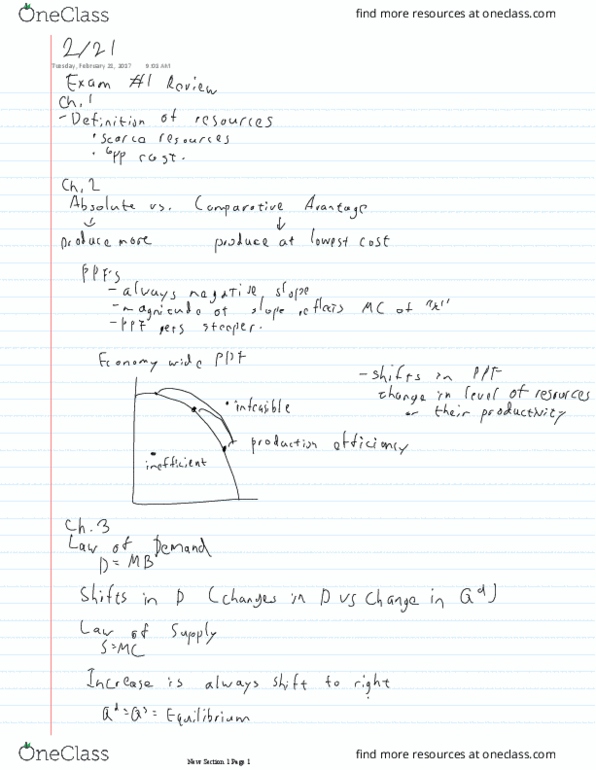 OneClass
find more resources at oneclass.com
2/21
Tuesday, February 21, 2017 9:03 AM
Exam #1 Review
Ch. 1
- Definition of resources
• scarce resources
• opp cost.
Ch. 2
Absolute vs. Comparative Avantage
produce more
produce at lowest cost
PPF's
- always negative slope
- magnitude of slope reflects MC of "x"
- PPF gets steeper.
Economy wide PPF
- shifts in PPF
change in level of resources
or their productivity
infeasible
production efficiency
inefficient
Ch. 3
Law of Demand
D = MB
Shifts in D (changes in D vs change in Qd)
Law of Supply
S=MC
Increase is always shift to right
Qd = Qs = Equilibrium
OneClass
New Section 1 Page 1
find more resources at oneclass.com